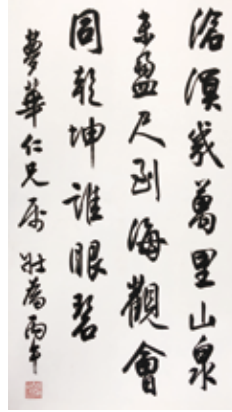 滄溟幾萬里山泉
未盈尺到海觀會
同乾坤誰眼碧
夢華仁兄屬 壯為丙午